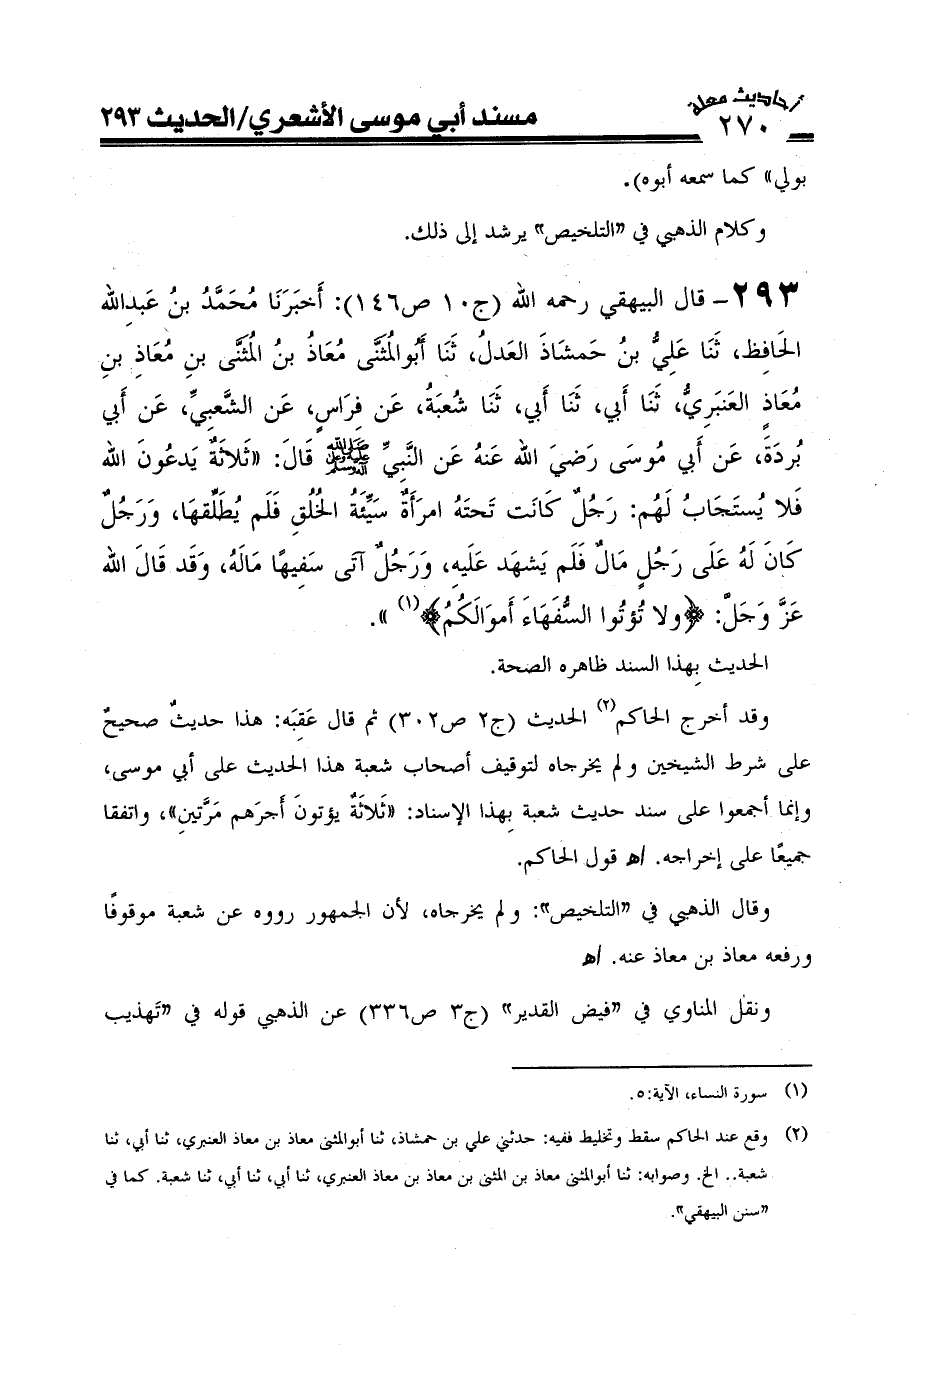 أحاديث معلة
٢٧٠
مسند أبي موسى الأشعري/الحديث ٢٩٣
بولي» كما سمعه أبوه).
وكلام الذهبي في «التلخيص» يرشد إلى ذلك.
٢٩٣- قال البيهقي رحمه الله (ج١٠ ص١٤٦): أَخبَرَنَا مُحَمَّدُ بنُ عَبدِالله
الحَافِظ، ثَنَا عَلِيُّ بنُ حَمشَاذَ العَدلُ، ثَنَا أَبُوالمُثَنَّى مُعَاذُ بنُ المُثَنَّى بنِ مُعَاذِ بنِ
مُعَاذٍ العَنبَرِيُّ، ثَنَا أَبي، ثَنَا أَبي، ثَنَا شُعبَةُ، عَن فِرَاسٍ، عَن الشَّعبيِّ، عَن أَبي
بُردَةَ، عَن أَبي مُوسَى رَضيَ الله عَنهُ عَن النَّبيِّ ﷺ قَالَ: «ثَلاثَةٌ يَدعُونَ الله
فَلا يُستَجَابُ لَهُم: رَجُلٌ كَانَت تَحتَهُ امرَأَةٌ سَيِّئَةُ الخُلُقِ فَلَم يُطَلِّقهَا، وَرَجُلٌ
كَانَ لَهُ عَلَى رَجُلٍ مَالٌ فَلَم يَشهَد عَلَيهِ، وَرَجُلٌ آتَى سَفِيهًا مَالَهُ، وَقَد قَالَ الله
عَزَّ وَجَلَّ: ﴿ولا تُؤتُوا السُّفَهَاءَ أَموَالَكُمُ﴾(١) ».
الحديث بِهذا السند ظاهره الصحة.
وقد أخرج الحاكم(٢) الحديث (ج٢ ص٣٠٢) ثم قال عَقِبَه: هذا حديثٌ صحيحٌ
على شرط الشيخين ولم يخرجاه لتوقيف أصحاب شعبة هذا الحديث على أبي موسى،
وإنما أجمعوا على سند حديث شعبة بِهذا الإسناد: «ثَلاثَةٌ يؤتونَ أجرَهم مَرَّتينِ»، واتفقا
جميعًا على إخراجه. اﻫ قول الحاكم.
وقال الذهبي في «التلخيص»: ولم يخرجاه، لأن الجمهور رووه عن شعبة موقوفًا
ورفعه معاذ بن معاذ عنه. اﻫ
ونقل المناوي في «فيض القدير» (ج٣ ص٣٣٦) عن الذهبي قوله في «تَهذيب
(١) سورة النساء، الآية:٥.
(٢) وقع عند الحاكم سقط وتخليط ففيه: حدثني علي بن حمشاذ، ثنا أبوالمثنى معاذ بن معاذ العنبري، ثنا أبي، ثنا
شعبة.. الخ. وصوابه: ثنا أبوالمثنى معاذ بن المثنى بن معاذ بن معاذ العنبري، ثنا أبي، ثنا أبي، ثنا شعبة. كما في
«سنن البيهقي».